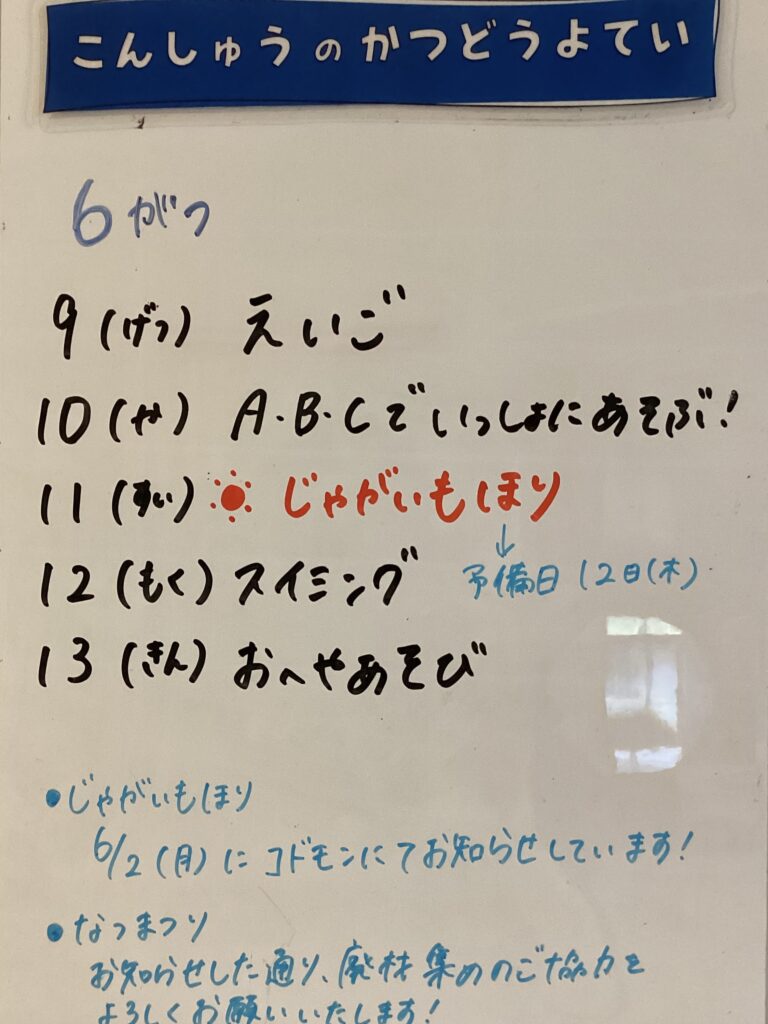 こんしゅうのかつどうよてい
6がつ
9(げつ) えいご
10(か) A・B・Cでいっしょにあそぶ!
11(すい) じゃがいもほり
↓
予備日 12日(木)
12(もく) スイミング
13(きん) おへやあそび
•じゃがいもほり
6/2(月)にコドモンにてお知らせしています!
•なつまつり
お知らせした通り、廃材集めのご協力を
よろしくお願いいたします!